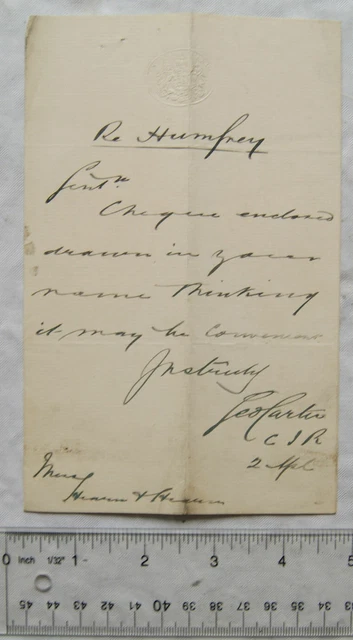 Re Humfrey
Gentn
Cheque enclosed
drawn in your
name thinking
it may be convenient
Yrs truly
Geo Carter
C I R
2 Apl
Messrs
Hearn & Hearn
0 inch 1/32" 1 2 3 4 5
45 44 43 42 41 40 39 38 37 36 35 34 33